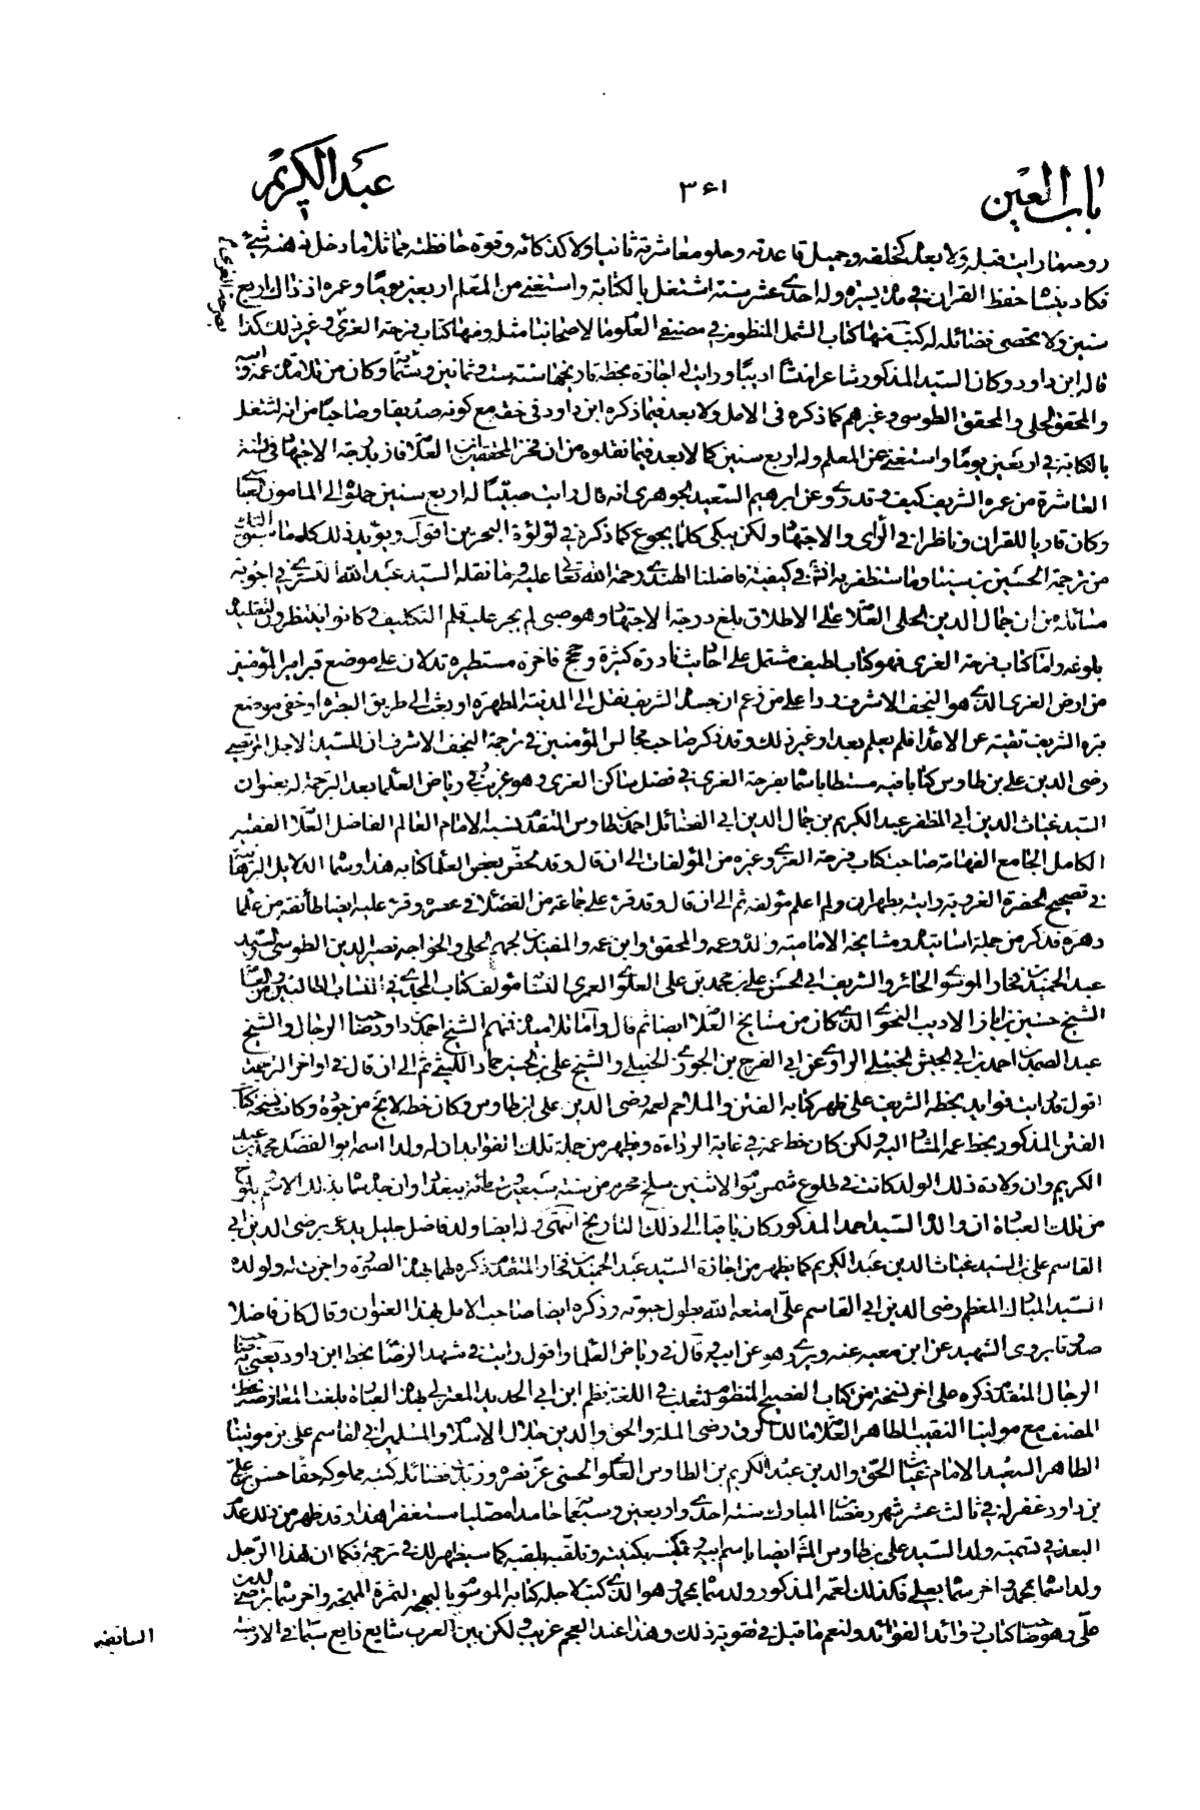 باب العين
٣٦١
عبد الكريم
روحهما رايت قبله ولا بعده كخلقه وجميل قاعدته وحلو معاشرته ثانيا ولا كذكائه وقوة حافظته مماثلا ما دخل ذهنه شئ
فكاد ينساه حفظ القران في مدة يسيرة وله احدى عشر سنة اشتغل بالكتابة واستغنى من المعلم اربعين يوما وعمره اذ ذاك اربع
سنين ولا تحصى فضائله له كتب منها كتاب الشمل المنظوم في مصنفي العلوم ما لاصحابنا مثل ومنها كتاب فرحة الغرى وغير ذلك كذا
قال ابن داود وكان السيد المذكور شاعرا منشا اديبا ورايت له اجازة بخطه تاريخها سنة ست وثمانين وستمائة وكان من تلامذة عمه وابيه
والمحقق الحلى والمحقق الطوسى وغيرهم كما ذكره فى الامل ولا بعد فيما ذكره ابن داود فى حقه مع كونه صديقا وصاحبا من انه اشتغل
بالكتابة في اربعين يوما واستغنى عن المعلم وله اربع سنين كما لا بعد فيما نقلوه من ان فخر المحققين ابن العلامة فاز بدرجة الاجتهاد في السنة
العاشرة من عمره الشريف كيف وقد روى عن ابرهيم السعيد الجوهرى انه قال رايت صبيا له اربع سنين حملوه الى المامون العباسى
وكان قاريا للقران وناظرا في الراى والاجتهاد ولكن يبكى كلما يجوع كما ذكره في لؤلؤة البحرين اقول ويؤيد ذلك كله ما سبق
من ترجمة الحسين بن سينا وما ستظفر به انش في كيفية فاضلنا الهندى رحمة الله تعالى عليه وما نقله السيد عبد الله التسترى في اجوبة
مسائله من ان جمال الدين الحلى العلامة على الاطلاق بلغ درجة الاجتهاد وهو صبى لم يجر عليه قلم التكليف وكانوا ينتظرون لتقليده
بلوغه واما كتاب فرحة الغرى فهو كتاب لطيف مشتمل على احاديث نادرة كثيرة وحجج فاخرة مستطيرة تدلان على موضع قبر امير المؤمنين
من ارض الغرى الذى هو النجف الاشرف ردا على من زعم ان جسده الشريف نقل الى المدينة المطهرة او بعث الى طريق البصرة او خفى موضع
قبره الشريف تقية عن الاعداء فلم يعلم بعد او غير ذلك وقد ذكر صاحب مجالس المؤمنين في ترجمة النجف الاشرف ان للسيد الاجل المرتضى
رضى الدين على بن طاوس كتابا فيه مستطابا سماه بفرحة الغرى في فضل ساكن الغرى وهو غريب وفى رياض العلماء بعد الترجمة له بعنوان
السيد غياث الدين ابي المظفر عبد الكريم بن جمال الدين ابي الفضائل احمد بن طاوس المتقدم نسبه الامام العالم الفاضل العلامة الفقيه
الكامل الجامع الفهامة صاحب كتاب فرحة الغرى وغيره من المؤلفات الى ان قال وقد لخص بعض العلماء كتابه هذا وسماه الدلايل البرهانية
في تصحيح الحضرة الغروية رايته بطهران ولم اعلم مؤلفه ثم الى ان قال وقد قرء على جماعة من الفضلاء في عصره وقرء عليه ايضا طائفة من علماء
دهره فذكر من جملة اساتيده ومشايخه الامامية والده وعمه والمحقق وابن عمه والمفيد بن الجهم الحلى والخواجه نصير الدين الطوسى والسيد
عبد الحميد بن فخار الموسوى الحائرى والشريف ابي الحسن على بن محمد بن على العلوى العمرى النسابة مؤلف كتاب المجدى في انساب الطالبيين
الشيخ حسين بن اياز الاديب النحوى الذى كان من مشايخ العلامة ايضا ثم قال واما تلامذته فمنهم الشيخ احمد بن داود صاحب الرجال والشيخ
عبد الصمد بن احمد بن ابي الجيش الحنبلى الراوى عن ابي الفرج بن الجوزى الحنبلى والشيخ على بن الحسين بن حماد الليثى ثم الى ان قال في اواخر الترجمة
اقول قد رايت فوايد بخطه الشريف على ظهر كتابه الفتن والملاحم لعمه رضى الدين على ابن طاوس وكان خطه لا يخ من جودة وكانت نسخة كتاب
الفتن المذكور بخط عمه المشار اليه ولكن كان خط عمه في غاية الرداءة ويظهر من جملة تلك الفوايد ان له ولدا اسمه ابو الفضل محمد بن عبد
الكريم وان ولادة ذلك الولد كانت في طلوع شمس يوم الاثنين سلخ محرم من سنة سبعين وستمائة ببغداد وان جده سماه بذلك الاسم يلوح
من تلك العبارة ان والده السيد احمد المذكور كان باقيا الى ذلك التاريخ انتهى وله ايضا ولد فاضل جليل يدعى برضى الدين ابي
القاسم على بن السيد غياث الدين عبد الكريم كما يظهر من اجازة السيد عبد الحميد بن فخار المتقدمة ذكره لهما بهذه الصورة واجزت له ولولده
السيد المبارك المعظم رضى الدين ابي القاسم على امتعه الله بطول حيوته وذكره ايضا صاحب الامل بهذا العنوان وقال كان فاضلا
صدوقا يروى الشهيد عن ابن معية عنه ويروى هو عن ابيه وقال في رياض العلماء واقول رايت في مشهد الرضا بخط ابن داود يعنى به صاحب
الرجال المتقدمة ذكره على اخر نسخة من كتاب الفصيح المنظوم لثعلب في اللغة بنظم ابن ابي الحديد المعتزلى بهذه العبارة بلغت المعارضة بخط
المصنف مع مولينا النقيب الطاهر العلامة مالك الرق رضى الملة والحق والدين جلال الاسلام والمسلمين ابي القاسم على بن مولينا
الطاهر السعيد الامام غياث الحق والدين عبد الكريم بن الطاوس العلوى الحسنى عز نصره وزيدت فضائله كتبه مملوكه حقا حسن بن على
بن داود غفر له في ثالث عشر شهر رمضان المبارك سنة احدى واربعين وسبعمائة حامدا مصليا مستغفرا هذا وقد ظهر من ذلك عدم
البعد في تسمية ولد السيد على بن طاوس الم ايضا باسم ابيه وتكنيه بكنيته وتلقبه بلقبه كما سيظهر لك في ترجمة فكما ان لهذا الرجل
ولدا سماه بمحمد واخر سماه بعلى فكذلك لعمه المذكور ولد سماه بمحمد وهو الذى كتب لاجله كتابه الموسوم بالبهجة لثمرة المهجة واخر سماه برضى الدين
على وهو صاحب كتاب زوائد الفوائد ولنعم ما قيل في تقوية ذلك وهذا عند العجم غريب ولكن بين العرب شايع ذايع سيما في الازمنة
السابقة